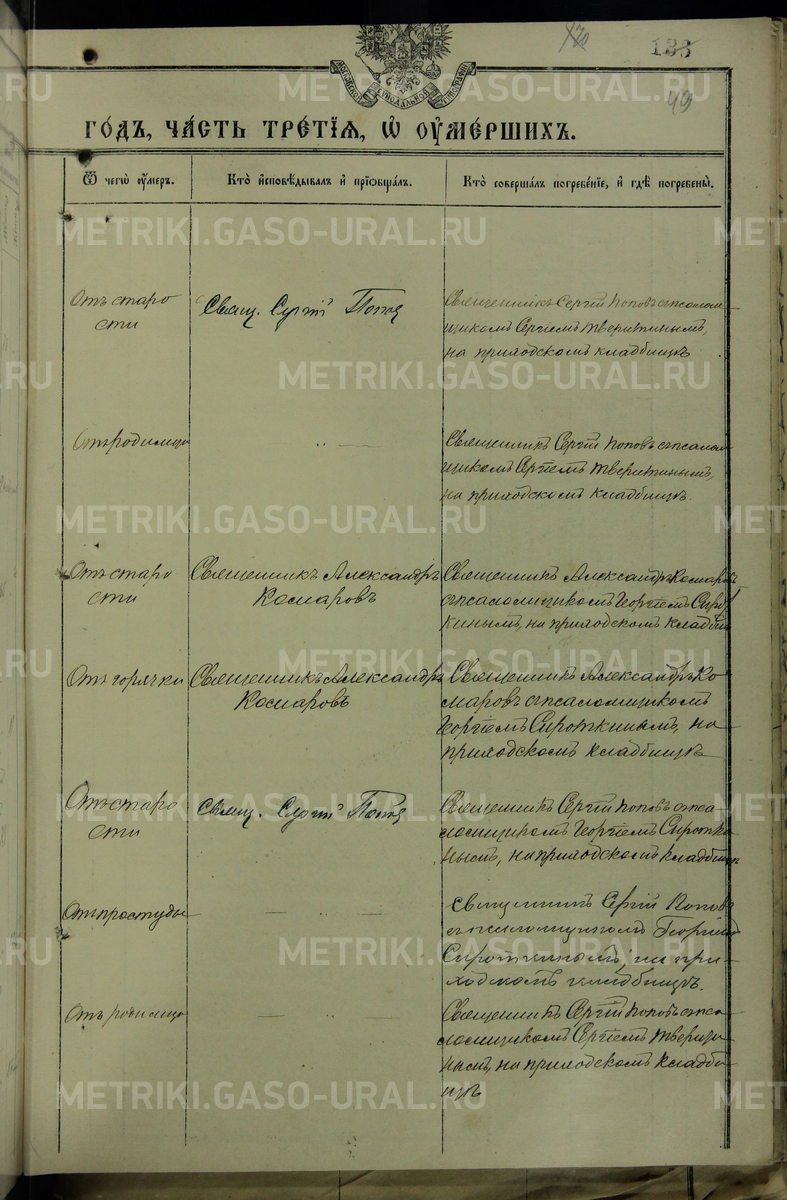 133
49
годъ, часть третїѧ, ѡ оумершихъ.
Ѿ чегѡ оумеръ.
Кто исповѣдывалъ и прїобщалъ.
Кто совершалъ погребенїе, и гдѣ погребены.
Отъ старо
сти
Свящ. Сергій Поповъ
Священникъ Сергій Поповъ съ псалом-
щикомъ Сергіемъ Тверитинымъ,
на приходскомъ кладбищѣ
Отъ родимца
Священникъ Сергій Поповъ съ псалом
щикомъ Сергіемъ Тверитинымъ,
на приходскомъ кладбищѣ.
Отъ старо
сти
Священникъ Александръ
Комаровъ
Священникъ Александръ Комаровъ
съ псаломщикомъ Георгіемъ Сирот
кинымъ, на приходскомъ кладбищ
Отъ горячки
Священникъ Александръ
Комаровъ
Священникъ Александръ Ко
маровъ съ псаломщикомъ
Георгіемъ Сироткинымъ, на
приходскомъ кладбищѣ
Отъ старо
сти
Свящ. Сергій Поповъ
Священникъ Сергій Поповъ съ пса
ломщикомъ Георгіемъ Сиротки
нымъ, на приходскомъ кладбищѣ
Отъ простуды
Священникъ Сергій Поповъ
съ псаломщикомъ Георгіемъ
Сироткинымъ, на при-
ходскомъ кладбищѣ.
Отъ родимца
Священникъ Сергій Поповъ съ пса
ломщикомъ Сергіемъ Тверити
нымъ, на приходскомъ кладби
щѣ
METRIKI.GASO-URAL.RU